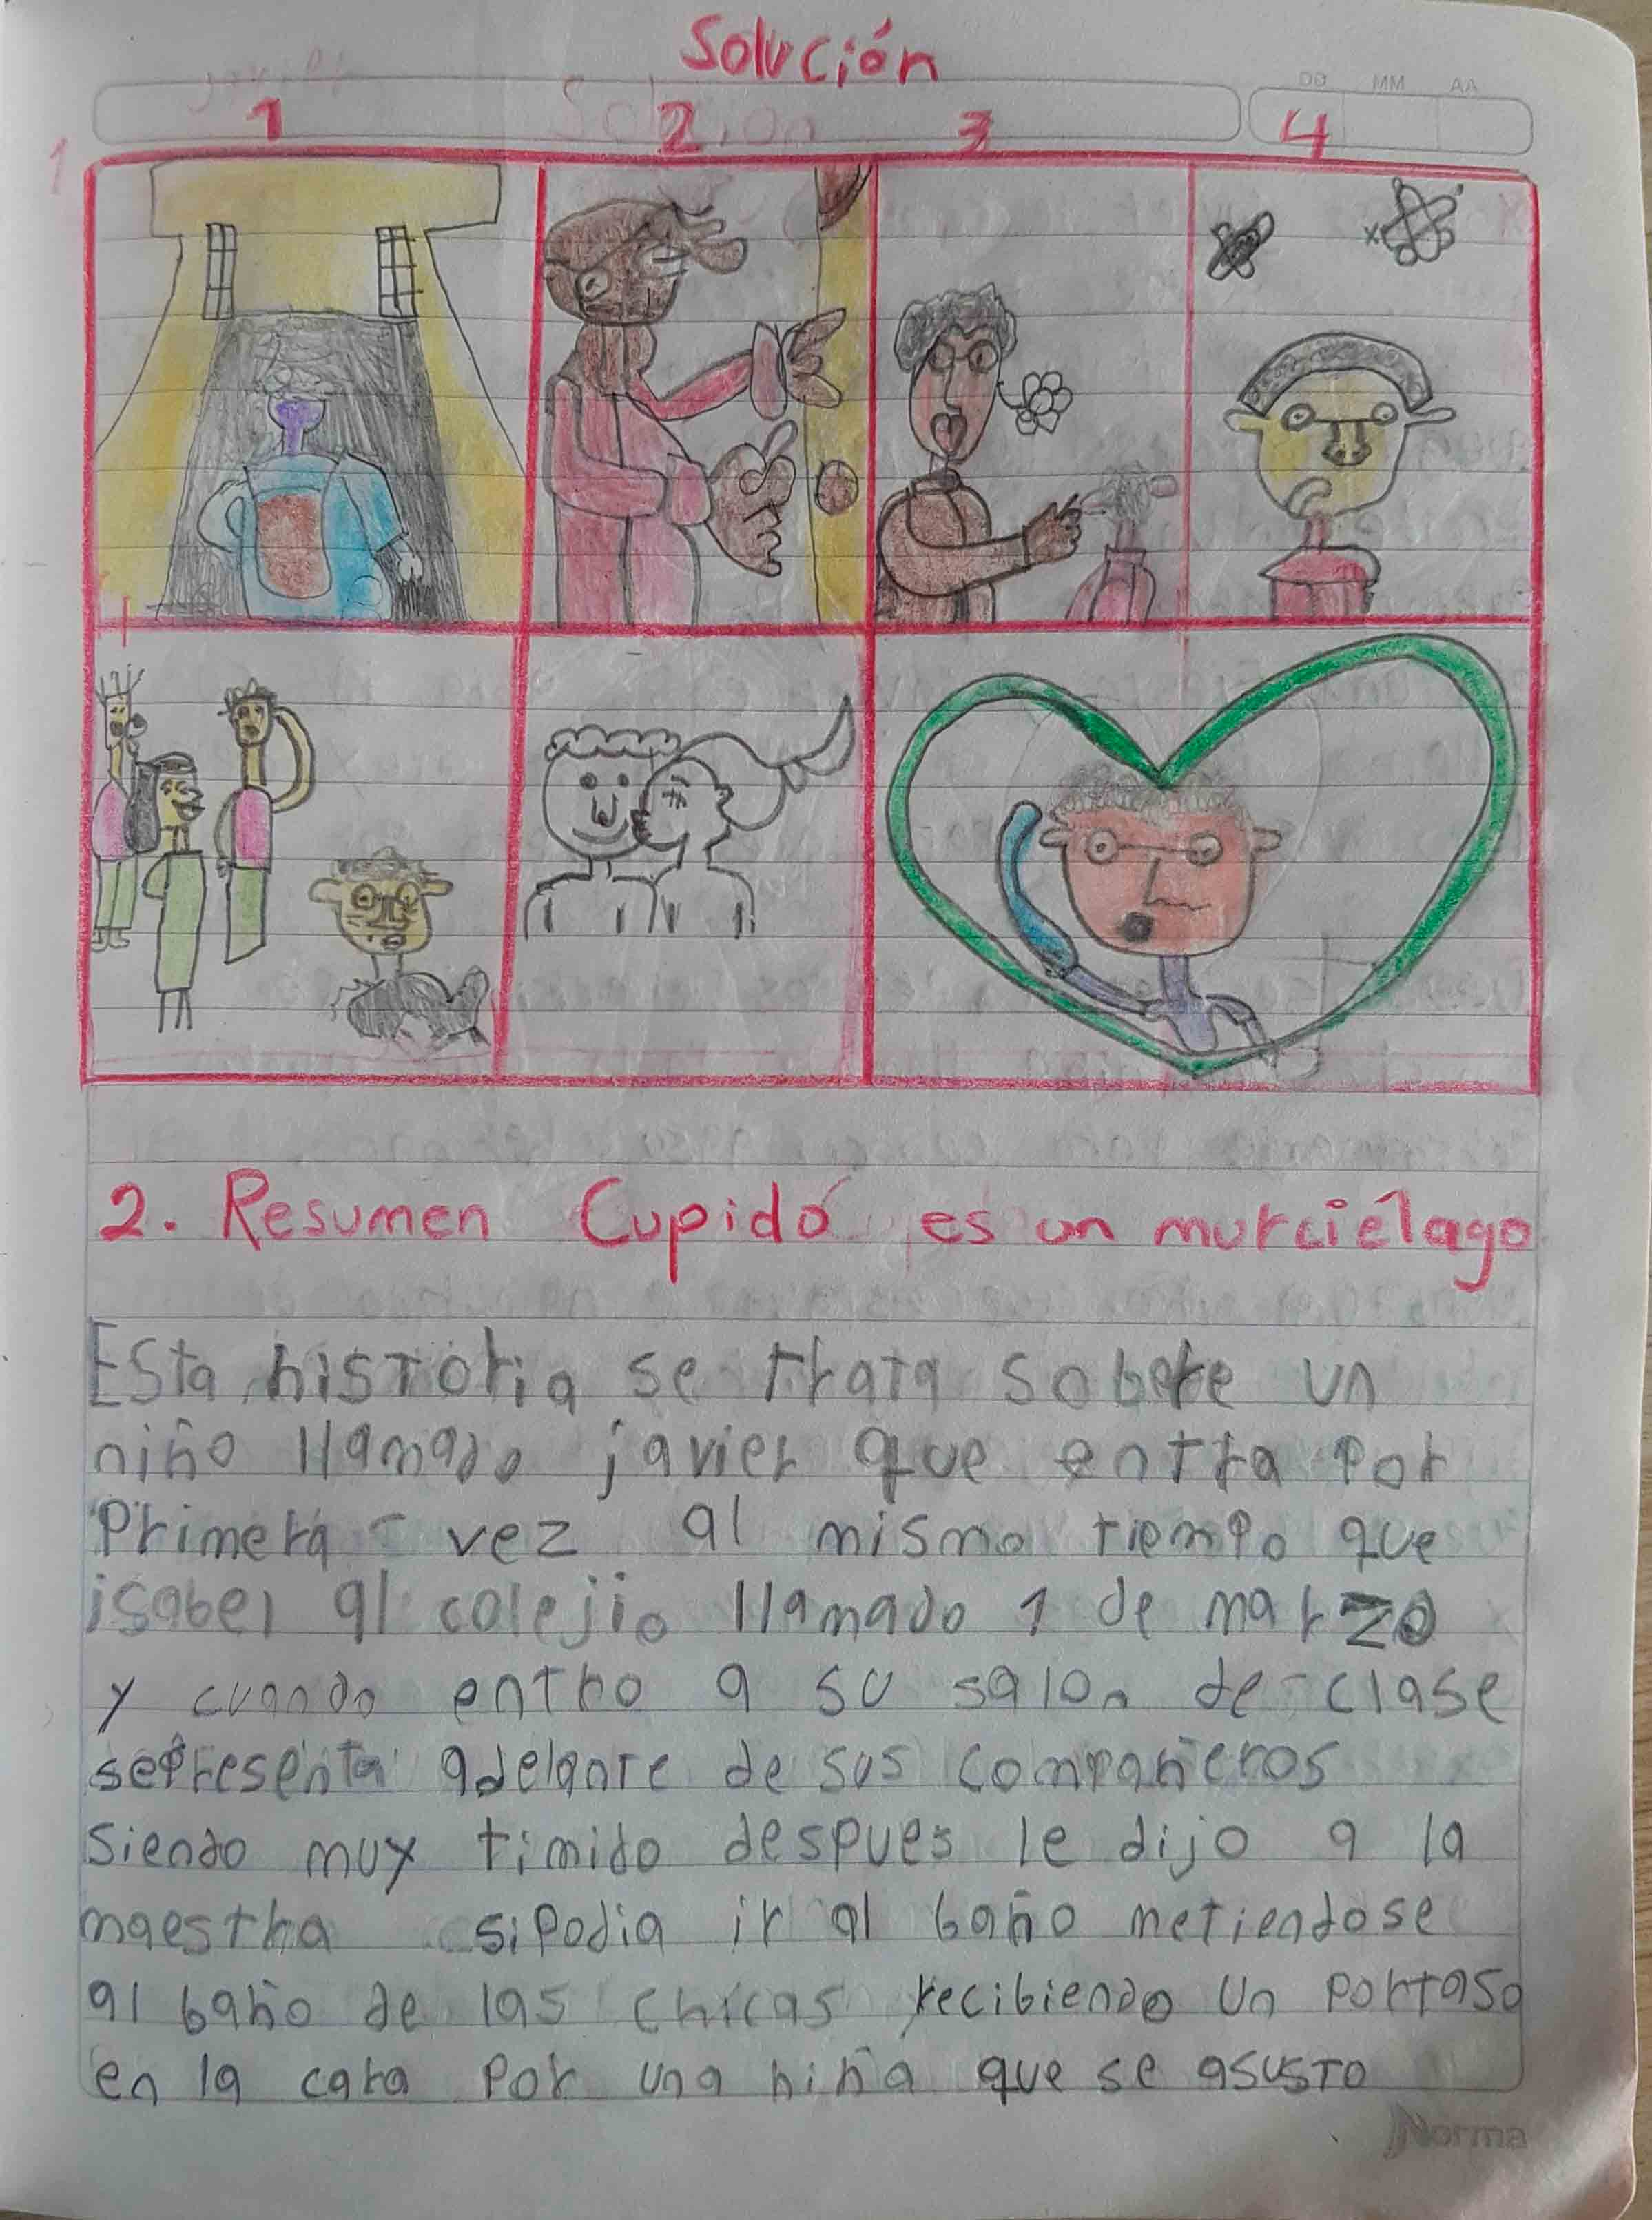 Solución
DD MM AA
1 2 3 4
1
2. Resumen Cupido es un murciélago
Esta historia se trata sobre un
niño llamado javier que entra por
Primera - vez al mismo tiempo que
isabel al colejio llamado 1 de marzo
y cuando entro a su salon de-clase
sepresenta adelante de sus compañeros
siendo muy timido despues le dijo a la
maestra sipodia ir al baño metiendose
al baño de las chicas recibiendo un portaso
en la cara por una niña que se asusto
Norma